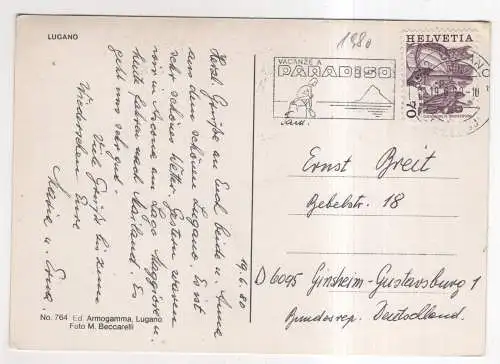 LUGANO
1980
HELVETIA
VACANZE A
PARADISO
70
19.6.80
Herzl. Grüße an Euch beide u. Anna
aus dem schönen Lugano. Es ist
sehr schönes Wetter. Gestern waren
wir in Ascona am Lago Maggiore u.
heute fahren nach Mailand. Es
geht uns sehr gut.
Viele Grüße bis zum
Wiedersehen Eure
u. Erna.
Ernst Breit
Bebelstr. 18
D 6095 Ginsheim-Gustavsburg 1
Bundesrep. Deutschland.
No. 764 Ed. Armogamma, Lugano
Foto M. Beccarelli